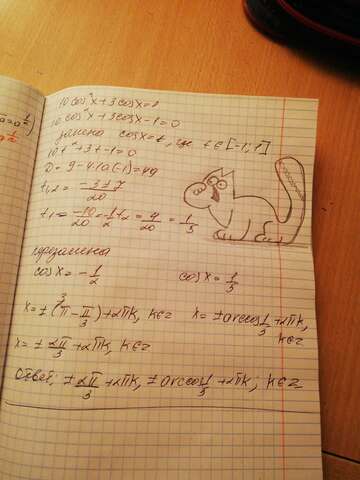 a=a½)
a½
10cos²x+3cosx=1
10cos²x+3cosx-1=0
замена cosx=t, где t∈[-1;1]
10t²+3t-1=0
D=9-4·10(-1)=49
t₁,₂=-3±7/20
t₁=-10/20=-1/2 t₂=4/20=1/5
обрзамена
cosx=-1/2 cosx=1/5
x=±(³π-π/3)+2πk, k∈z x=±arccos1/5+2πk, k∈z
x=±2π/3+2πk, k∈z
Ответ: ±2π/3+2πk, ±arccos1/5+2πk; k∈z